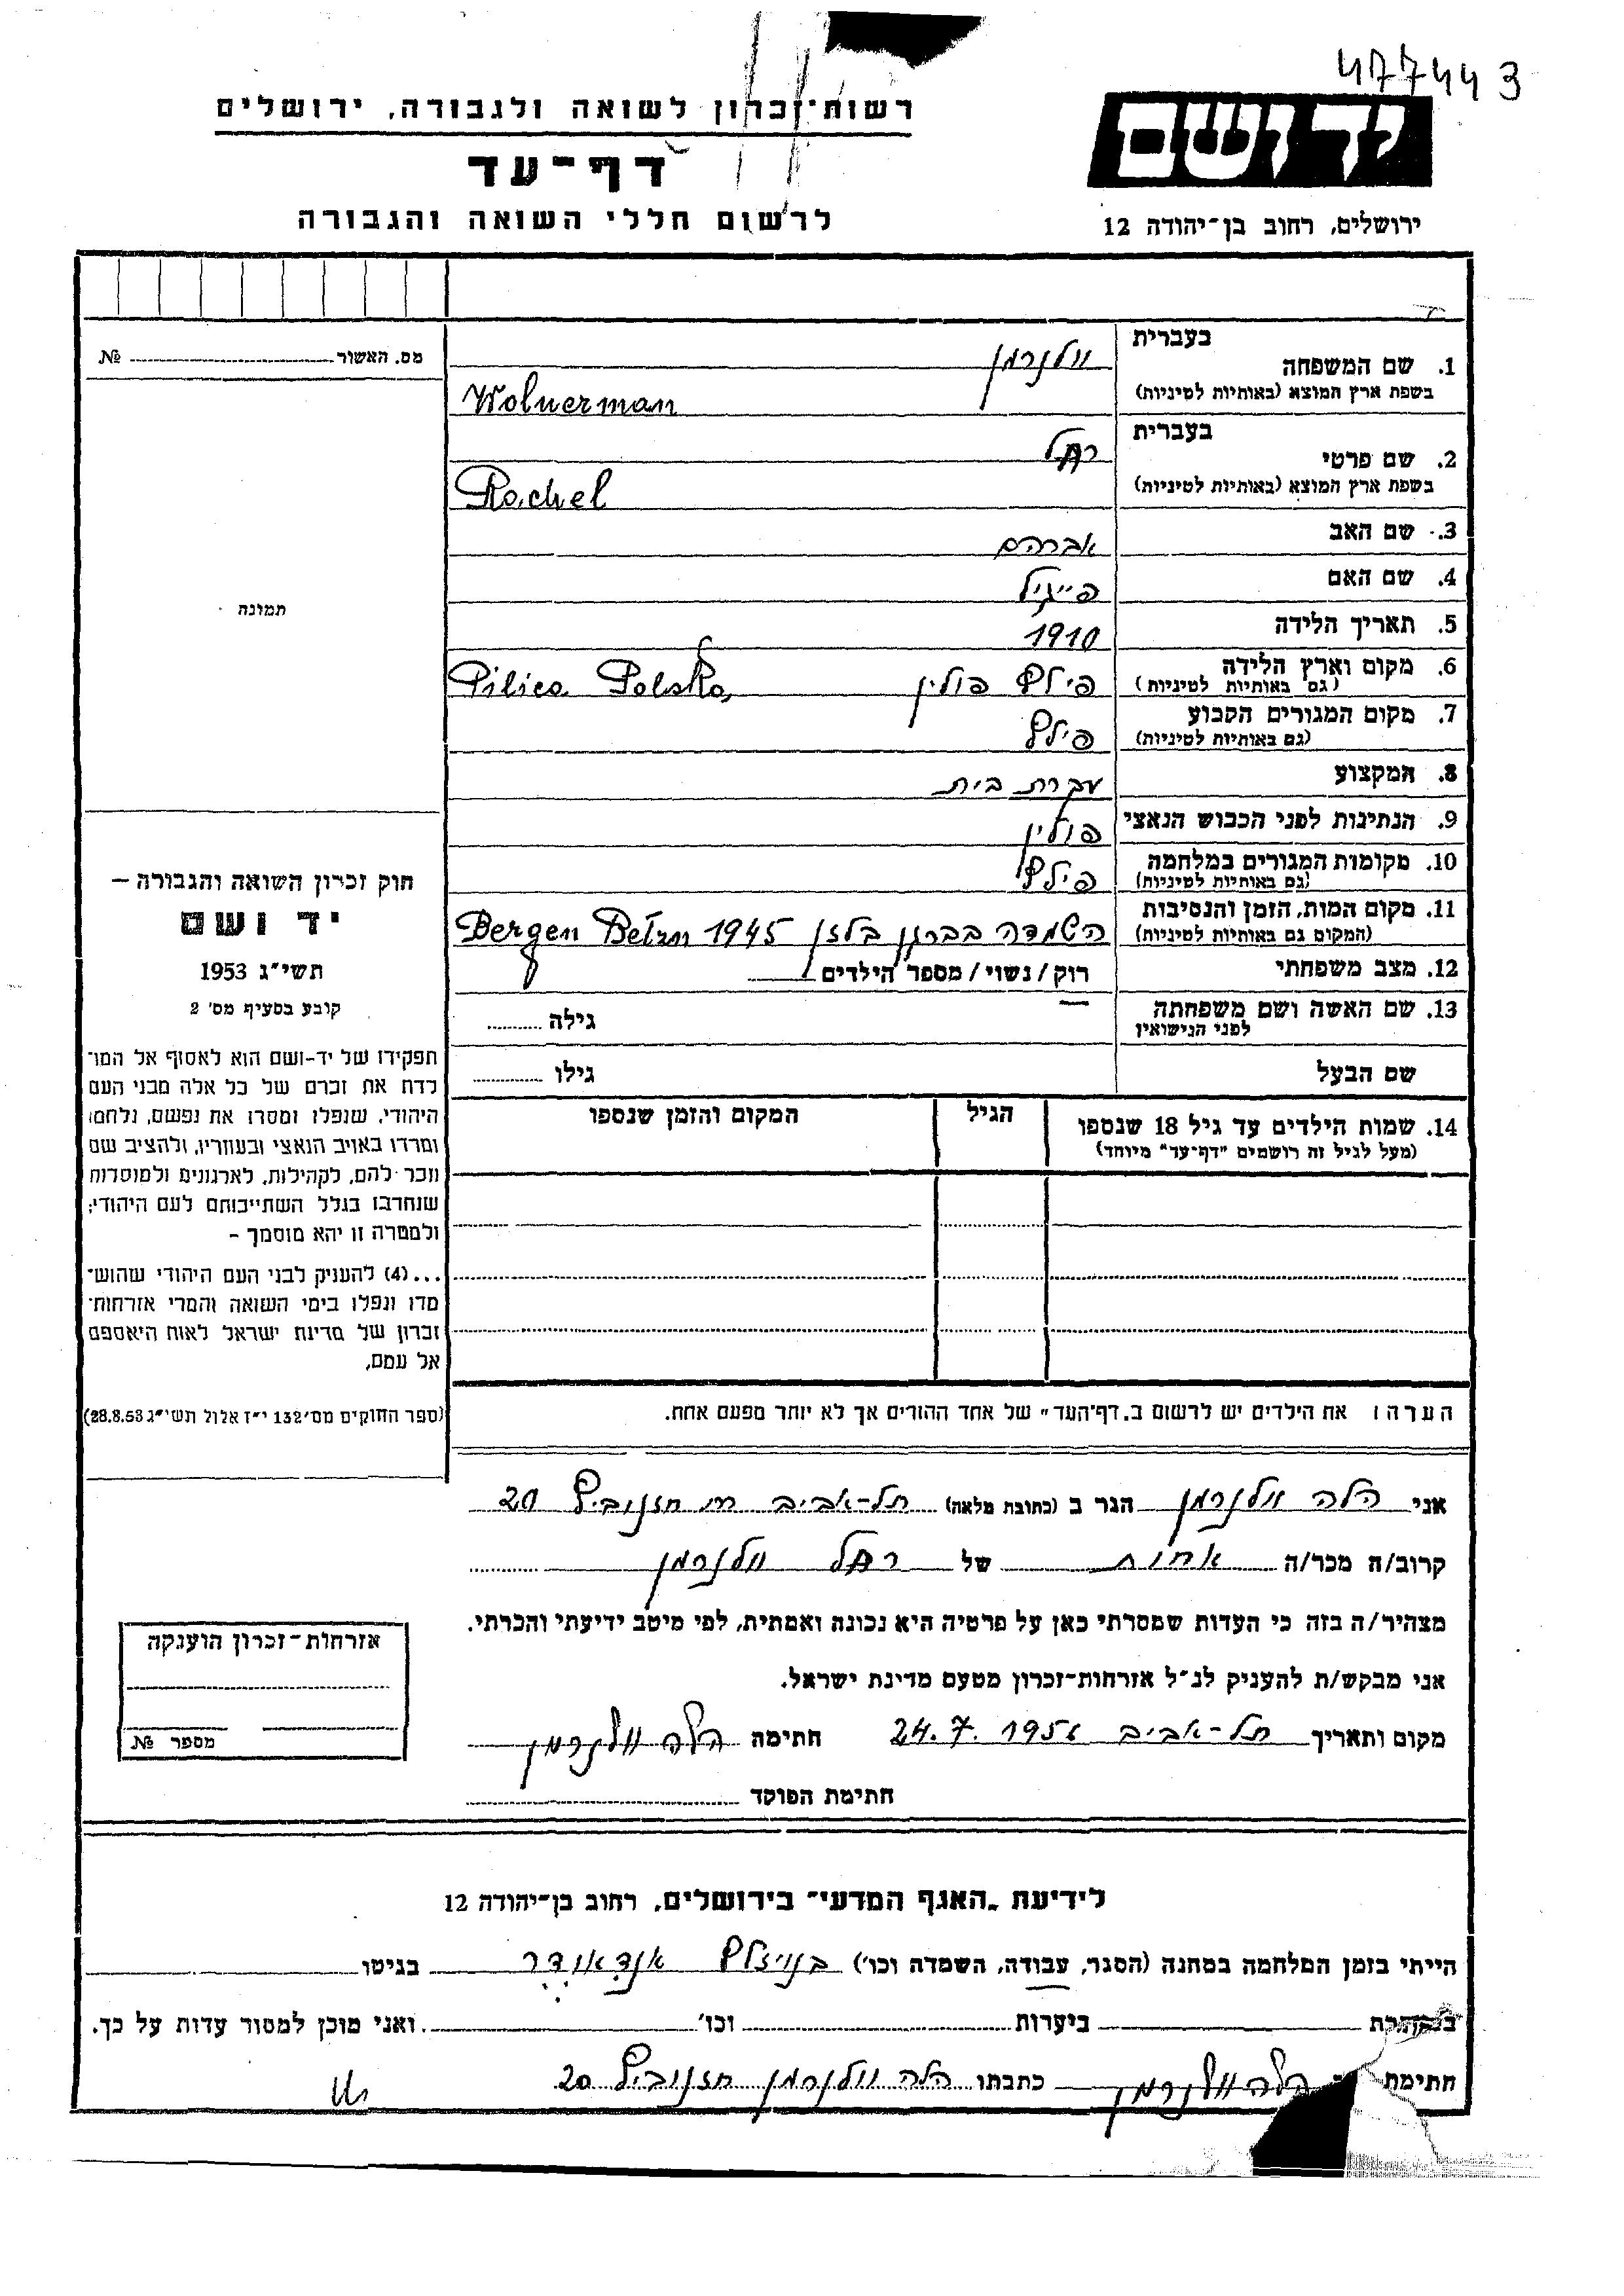 477443
יד ושם
ירושלים, רחוב בן־יהודה 12
רשות־זכרון לשואה ולגבורה, ירושלים
דף־עד
לרשום חללי השואה והגבורה
1. שם המשפחה
בעברית
וולנרמן
בשפת ארץ המוצא (באותיות לטיניות)
Wolnerman
2. שם פרטי
בעברית
רחל
בשפת ארץ המוצא (באותיות לטיניות)
Rachel
3. שם האב
אברהם
4. שם האם
פייגיל
5. תאריך הלידה
1910
6. מקום וארץ הלידה
(גם באותיות לטיניות)
פילץ פולין Pilica Polska
7. מקום המגורים הקבוע
(גם באותיות לטיניות)
פילץ
8. המקצוע
עקרת בית
9. הנתינות לפני הכבוש הנאצי
פולין
10. מקומות המגורים במלחמה
(גם באותיות לטיניות)
פילץ
11. מקום המות, הזמן והנסיבות
(המקום גם באותיות לטיניות)
השמדה בברגן בלזן 1945 Bergen Belzn
12. מצב משפחתי
רוק/נשוי/מספר הילדים
13. שם האשה ושם משפחתה
לפני הנישואין
גילה
שם הבעל
גילו
14. שמות הילדים עד גיל 18 שנספו
(מעל לגיל זה רושמים "דף־עד" מיוחד)
הגיל
המקום והזמן שנספו
הערה: את הילדים יש לרשום ב„דף־העד" של אחד ההורים אך לא יותר מפעם אחת.
מס. האשור № 
תמונה
חוק זכרון השואה והגבורה –
יד ושם
תשי"ג 1953
קובע בסעיף מס' 2
תפקידו של יד-ושם הוא לאסוף אל המו־
לדת את זכרם של כל אלה מבני העם
היהודי, שנפלו ומסרו את נפשם, נלחמו
ומרדו באויב הנאצי ובעוזריו, ולהציב שם
וזכר להם, לקהילות, לארגונים ולמוסדות
שנחרבו בגלל השתייכותם לעם היהודי;
ולמטרה זו יהא מוסמך –
...(4) להעניק לבני העם היהודי שהוש־
מדו ונפלו בימי השואה והמרי אזרחות־
זכרון של מדינת ישראל לאות היאספם
אל עמם.
(ספר החוקים מס' 132 י"ז אלול תשי"ג 28.8.53)
אני הלה וולנרמן הגר ב (כתובת מלאה) תל-אביב 20
קרוב/ה מכר/ה אחות של רחל וולנרמן
מצהיר/ה בזה כי העדות שמסרתי כאן על פרטיה היא נכונה ואמתית, לפי מיטב ידיעתי והכרתי.
אני מבקש/ת להעניק לנ"ל אזרחות-זכרון מטעם מדינת ישראל.
מקום ותאריך תל-אביב 24.7.1956 חתימה הלה וולנרמן
חתימת הפוקד
אזרחות-זכרון הוענקה
מספר №
לידיעת „האגף המדעי" בירושלים, רחוב בן־יהודה 12
הייתי בזמן המלחמה במחנה (הסגר, עבודה, השמדה וכו') בגיטו
במחתרת ביערות וכו' ואני מוכן למסור עדות על כך.
חתימת הלה וולנרמן כתבתו הלה וולנרמן 20